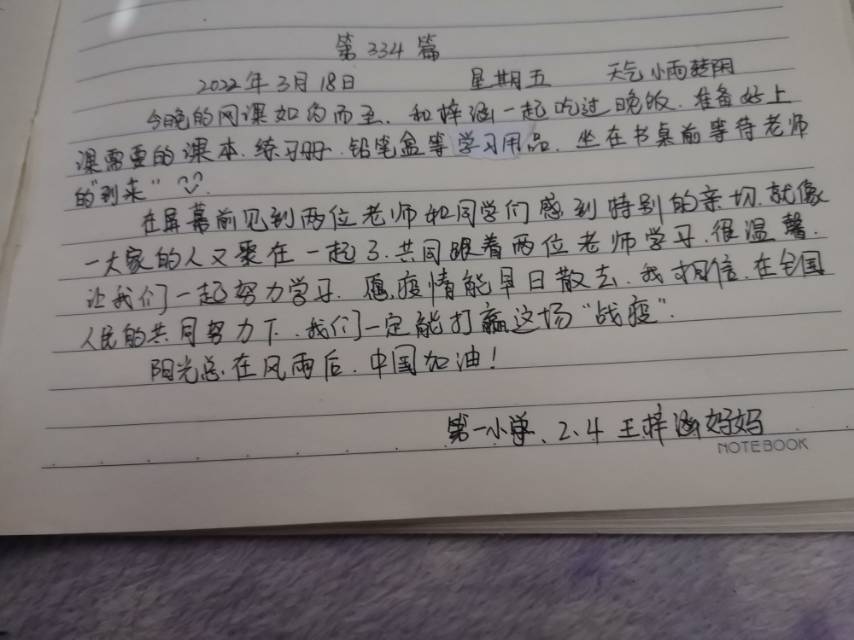 第334篇
2022年3月18日 星期五 天气 小雨转阴
今晚的网课如约而至、和梓涵一起吃过晚饭、准备好上
课需要的课本、练习册、铅笔盒等学习用品、坐在书桌前等待老师
的"到来"
在屏幕前见到两位老师和同学们感到特别的亲切、就像
一大家的人又聚在一起了、共同跟着两位老师学习、很温馨、
让我们一起努力学习、愿疫情能早日散去、我相信、在全国
人民的共同努力下、我们一定能打赢这场"战疫".
阳光总在风雨后、中国加油!
第一小学、2.4 王梓涵妈妈
NOTEBOOK